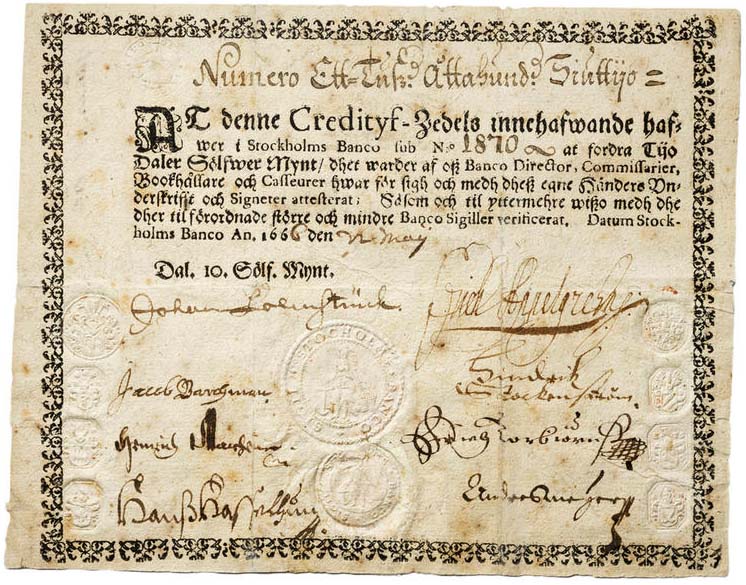 Numero Ett-Tuße Åttahunde Siuttijo =
AT denne Credityf-Zedels innehafwande haf-
wer i Stockholms Banco sub N:o 1870 at fordra Tijo
Daler Sölfwer Mynt / dhet warder af oß Banco Director, Commissarier,
Bookhållare och Casseurer hwar för sigh och medh dheß egne Händers Vn-
derskrifft och Signeter attesterat; Såsom och til ytermehre wißo medh dhe
dher til förordnade större och mindre Banco Sigiller verificerat. Datum Stock-
holms Banco An. 1666 den May
Dal. 10. Sölf. Mynt.
Johan
Jacob
Hindrik
Hanß
STOCKHOLMS BANCO